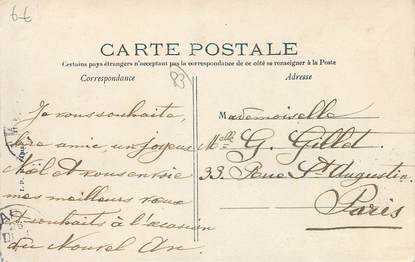 67
CARTE POSTALE
Certains pays étrangers n'acceptant pas la correspondance de ce côté se renseigner à la Poste
Correspondance
83
Adresse
Je vous souhaite,
amie, un joyeux
Noël et vous envoie
mes meilleurs vœux
souhaits à l'occasion
du Nouvel An.
Mademoiselle
Melle G. Gillet
33. Rue St Augustin
Paris